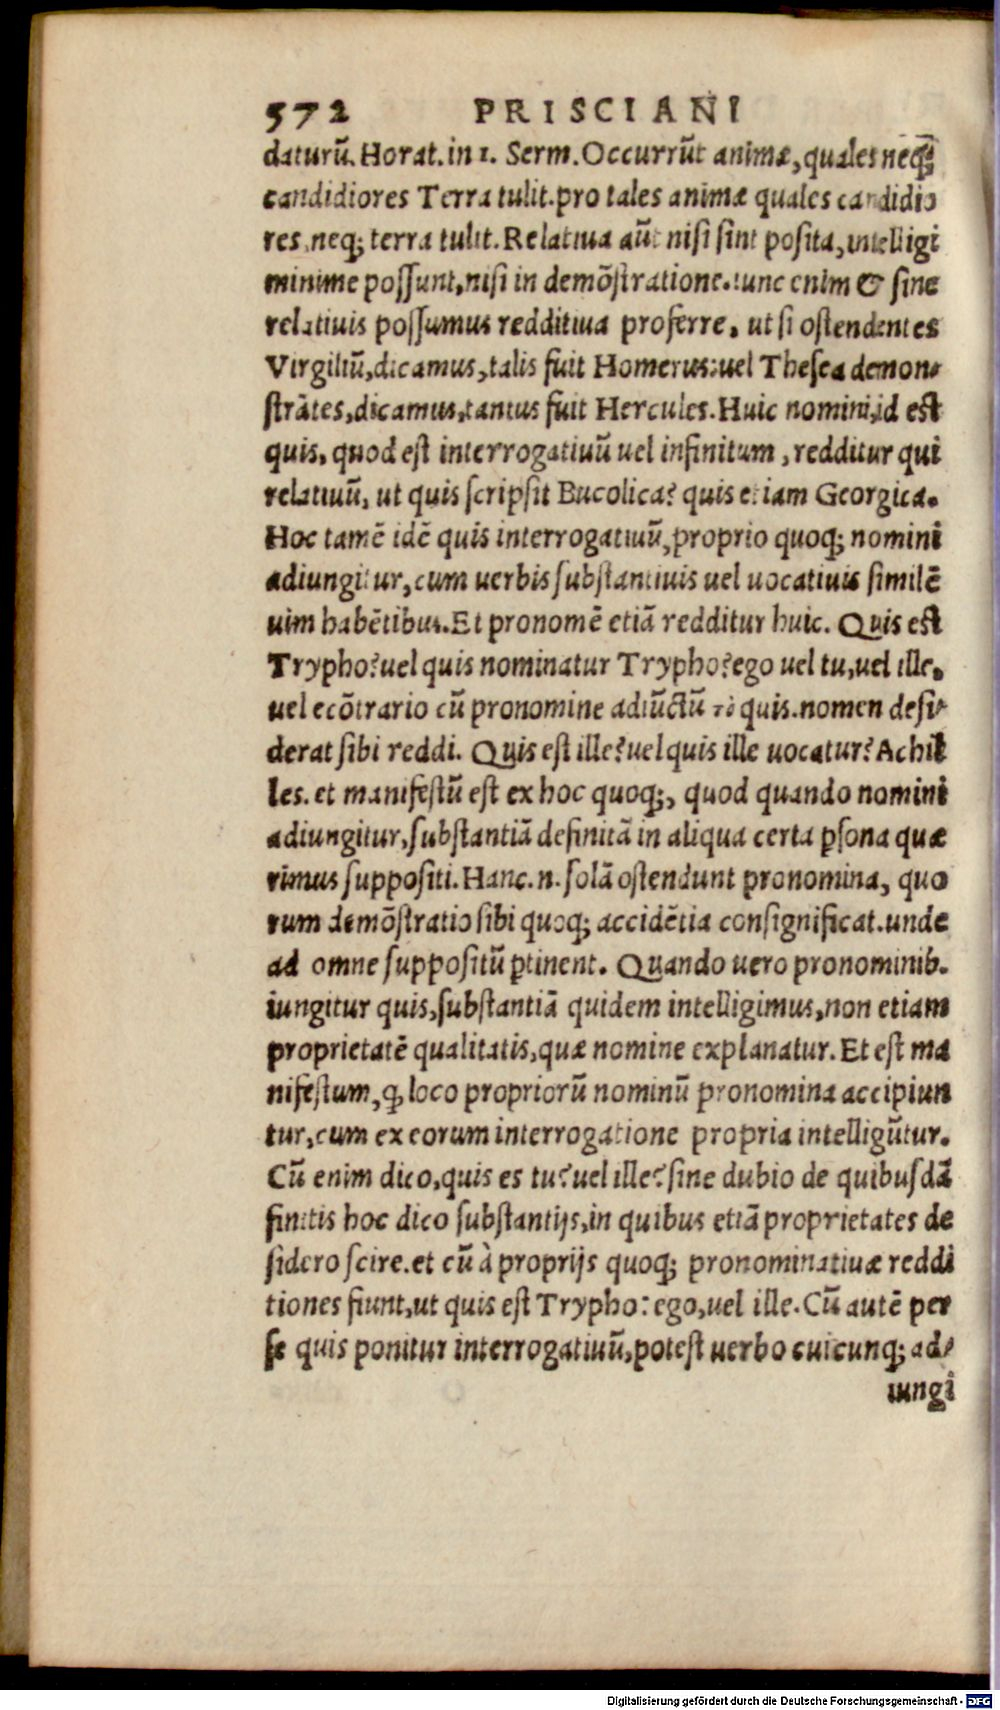 572 PRISCIANI
daturū. Horat. in 1. Serm. Occurrūt animæ, quales neq;
candidiores Terra tulit. pro tales animæ quales candidio
res neq; terra tulit. Relatiua aūt nisi sint posita, intelligi
minime possunt, nisi in demōstratione. tunc enim & sine
relatiuis possumus redditiua proferre, ut si ostendentes
Virgiliū, dicamus, talis fuit Homerus: uel Thesea demon-
strātes, dicamus, tantus fuit Hercules. Huic nomini, id est
quis, quod est interrogatiuū uel infinitum, redditur qui
relatiuū, ut quis scripsit Bucolica? quis etiam Georgica.
Hoc tamē idē quis interrogatiuū, proprio quoq; nomini
adiungitur, cum uerbis substantiuis uel uocatiuis similē
uim habētibus. Et pronomē etiā redditur huic. Quis est
Trypho? uel quis nominatur Trypho? ego uel tu, uel ille.
uel ecōtrario cū pronomine adiūctū τὸ quis. nomen desi-
derat sibi reddi. Quis est ille? uel quis ille uocatur? Achil
les. et manifestū est ex hoc quoq;, quod quando nomini
adiungitur, substantiā definitā in aliqua certa ꝑsona quæ
rimus suppositi. Hanc. n. solā ostendunt pronomina, quo
rum demōstratio sibi quoq; accidētia consignificat. unde
ad omne suppositū ꝑtinent. Quando uero pronominib.
iungitur quis, substantiā quidem intelligimus, non etiam
proprietatē qualitatis, quæ nomine explanatur. Et est ma
nifestum, ꝙ loco propriorū nominū pronomina accipiun
tur, cum ex eorum interrogatione propria intelligūtur.
Cū enim dico, quis es tu? uel ille? sine dubio de quibusdā
finitis hoc dico substantijs, in quibus etiā proprietates de
sidero scire. et cū à proprijs quoq; pronominatiuæ reddi
tiones fiunt, ut quis est Trypho: ego, uel ille. Cū autē per
se quis ponitur interrogatiuū, potest uerbo cuicunq; ad-
iungi
Digitalisierung gefördert durch die Deutsche Forschungsgemeinschaft - DFG